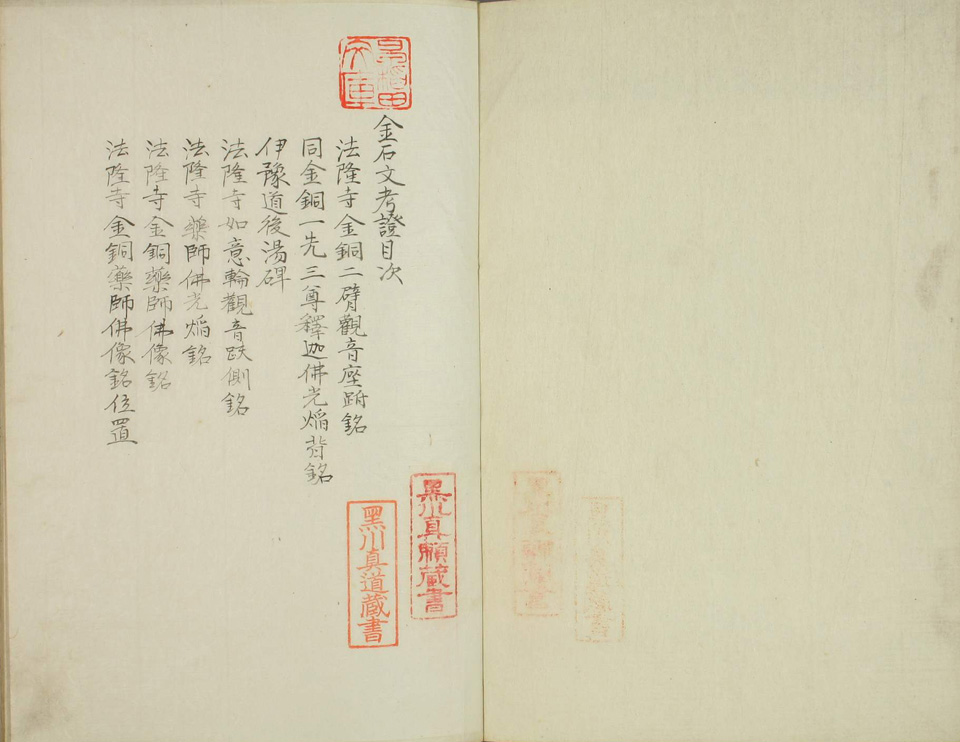 早稲田文庫
金石文考證目次
法隆寺金銅二臂觀音座跗銘
同金銅一先三尊釋迦佛光焔背銘
伊豫道後湯碑
法隆寺如意輪觀音趺側銘
法隆寺藥師佛光焔銘
法隆寺金銅藥師佛像銘
法隆寺金銅藥師佛像銘位置
黒川真頼蔵書
黒川真道蔵書